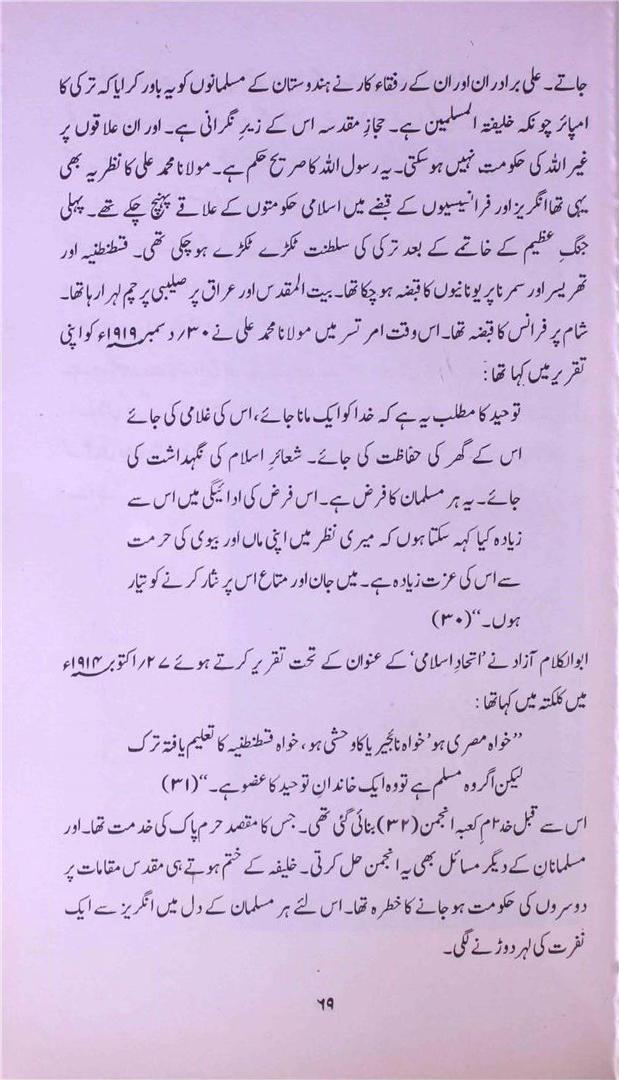 جاتے۔ علی برادران اور ان کے رفقاء کار نے ہندوستان کے مسلمانوں کو یہ باور کرایا کہ ترکی کا
امپائر چونکہ خلیفۃ المسلمین ہے۔ حجازِ مقدسہ اس کے زیرِ نگرانی ہے۔ اور ان علاقوں پر
غیر اللہ کی حکومت نہیں ہو سکتی۔ یہ رسول اللہ کا صریح حکم ہے۔ مولانا محمد علی کا نظریہ بھی
یہی تھا انگریز اور فرانسیسیوں کے قبضے میں اسلامی حکومتوں کے علاقے پہنچ چکے تھے۔ پہلی
جنگِ عظیم کے خاتمے کے بعد ترکی کی سلطنت ٹکڑے ٹکڑے ہو چکی تھی۔ قسطنطنیہ اور
تھریسر اور سمرنا پر یونانیوں کا قبضہ ہو چکا تھا۔ بیت المقدس اور عراق پر صلیبی پرچم لہرا رہا تھا۔
شام پر فرانس کا قبضہ تھا۔ اس وقت امرتسر میں مولانا محمد علی نے ۳۰؍ دسمبر ۱۹۱۹ء کو اپنی
تقریر میں کہا تھا:
توحید کا مطلب یہ ہے کہ خدا کو ایک مانا جائے، اس کی غلامی کی جائے
اس کے گھر کی حفاظت کی جائے۔ شعائرِ اسلام کی نگہداشت کی
جائے۔ یہ ہر مسلمان کا فرض ہے۔ اس فرض کی ادائیگی میں اس سے
زیادہ کیا کہہ سکتا ہوں کہ میری نظر میں اپنی ماں اور بیوی کی حرمت
سے اس کی عزت زیادہ ہے۔ میں جان اور متاع اس پر نثار کرنے کو تیار
ہوں۔“ (۳۰)
ابوالکلام آزاد نے ’اتحادِ اسلامی‘ کے عنوان کے تحت تقریر کرتے ہوئے ۲۷؍ اکتوبر ۱۹۱۴ء
میں کلکتہ میں کہا تھا:
”خواہ مصری ہو’ خواہ نائجیریا کا وحشی ہو، خواہ قسطنطنیہ کا تعلیم یافتہ ترک
لیکن اگر وہ مسلم ہے تو وہ ایک خاندانِ توحید کا عضو ہے۔“ (۳۱)
اس سے قبل خدامِ کعبہ انجمن (۳۲) بنائی گئی تھی۔ جس کا مقصد حرم پاک کی خدمت تھا۔ اور
مسلمانانِ کے دیگر مسائل بھی یہ انجمن حل کرتی۔ خلیفہ کے ختم ہوتے ہی مقدس مقامات پر
دوسروں کی حکومت ہو جانے کا خطرہ تھا۔ اس لئے ہر مسلمان کے دل میں انگریز سے ایک
نفرت کی لہر دوڑنے لگی۔
۶۹